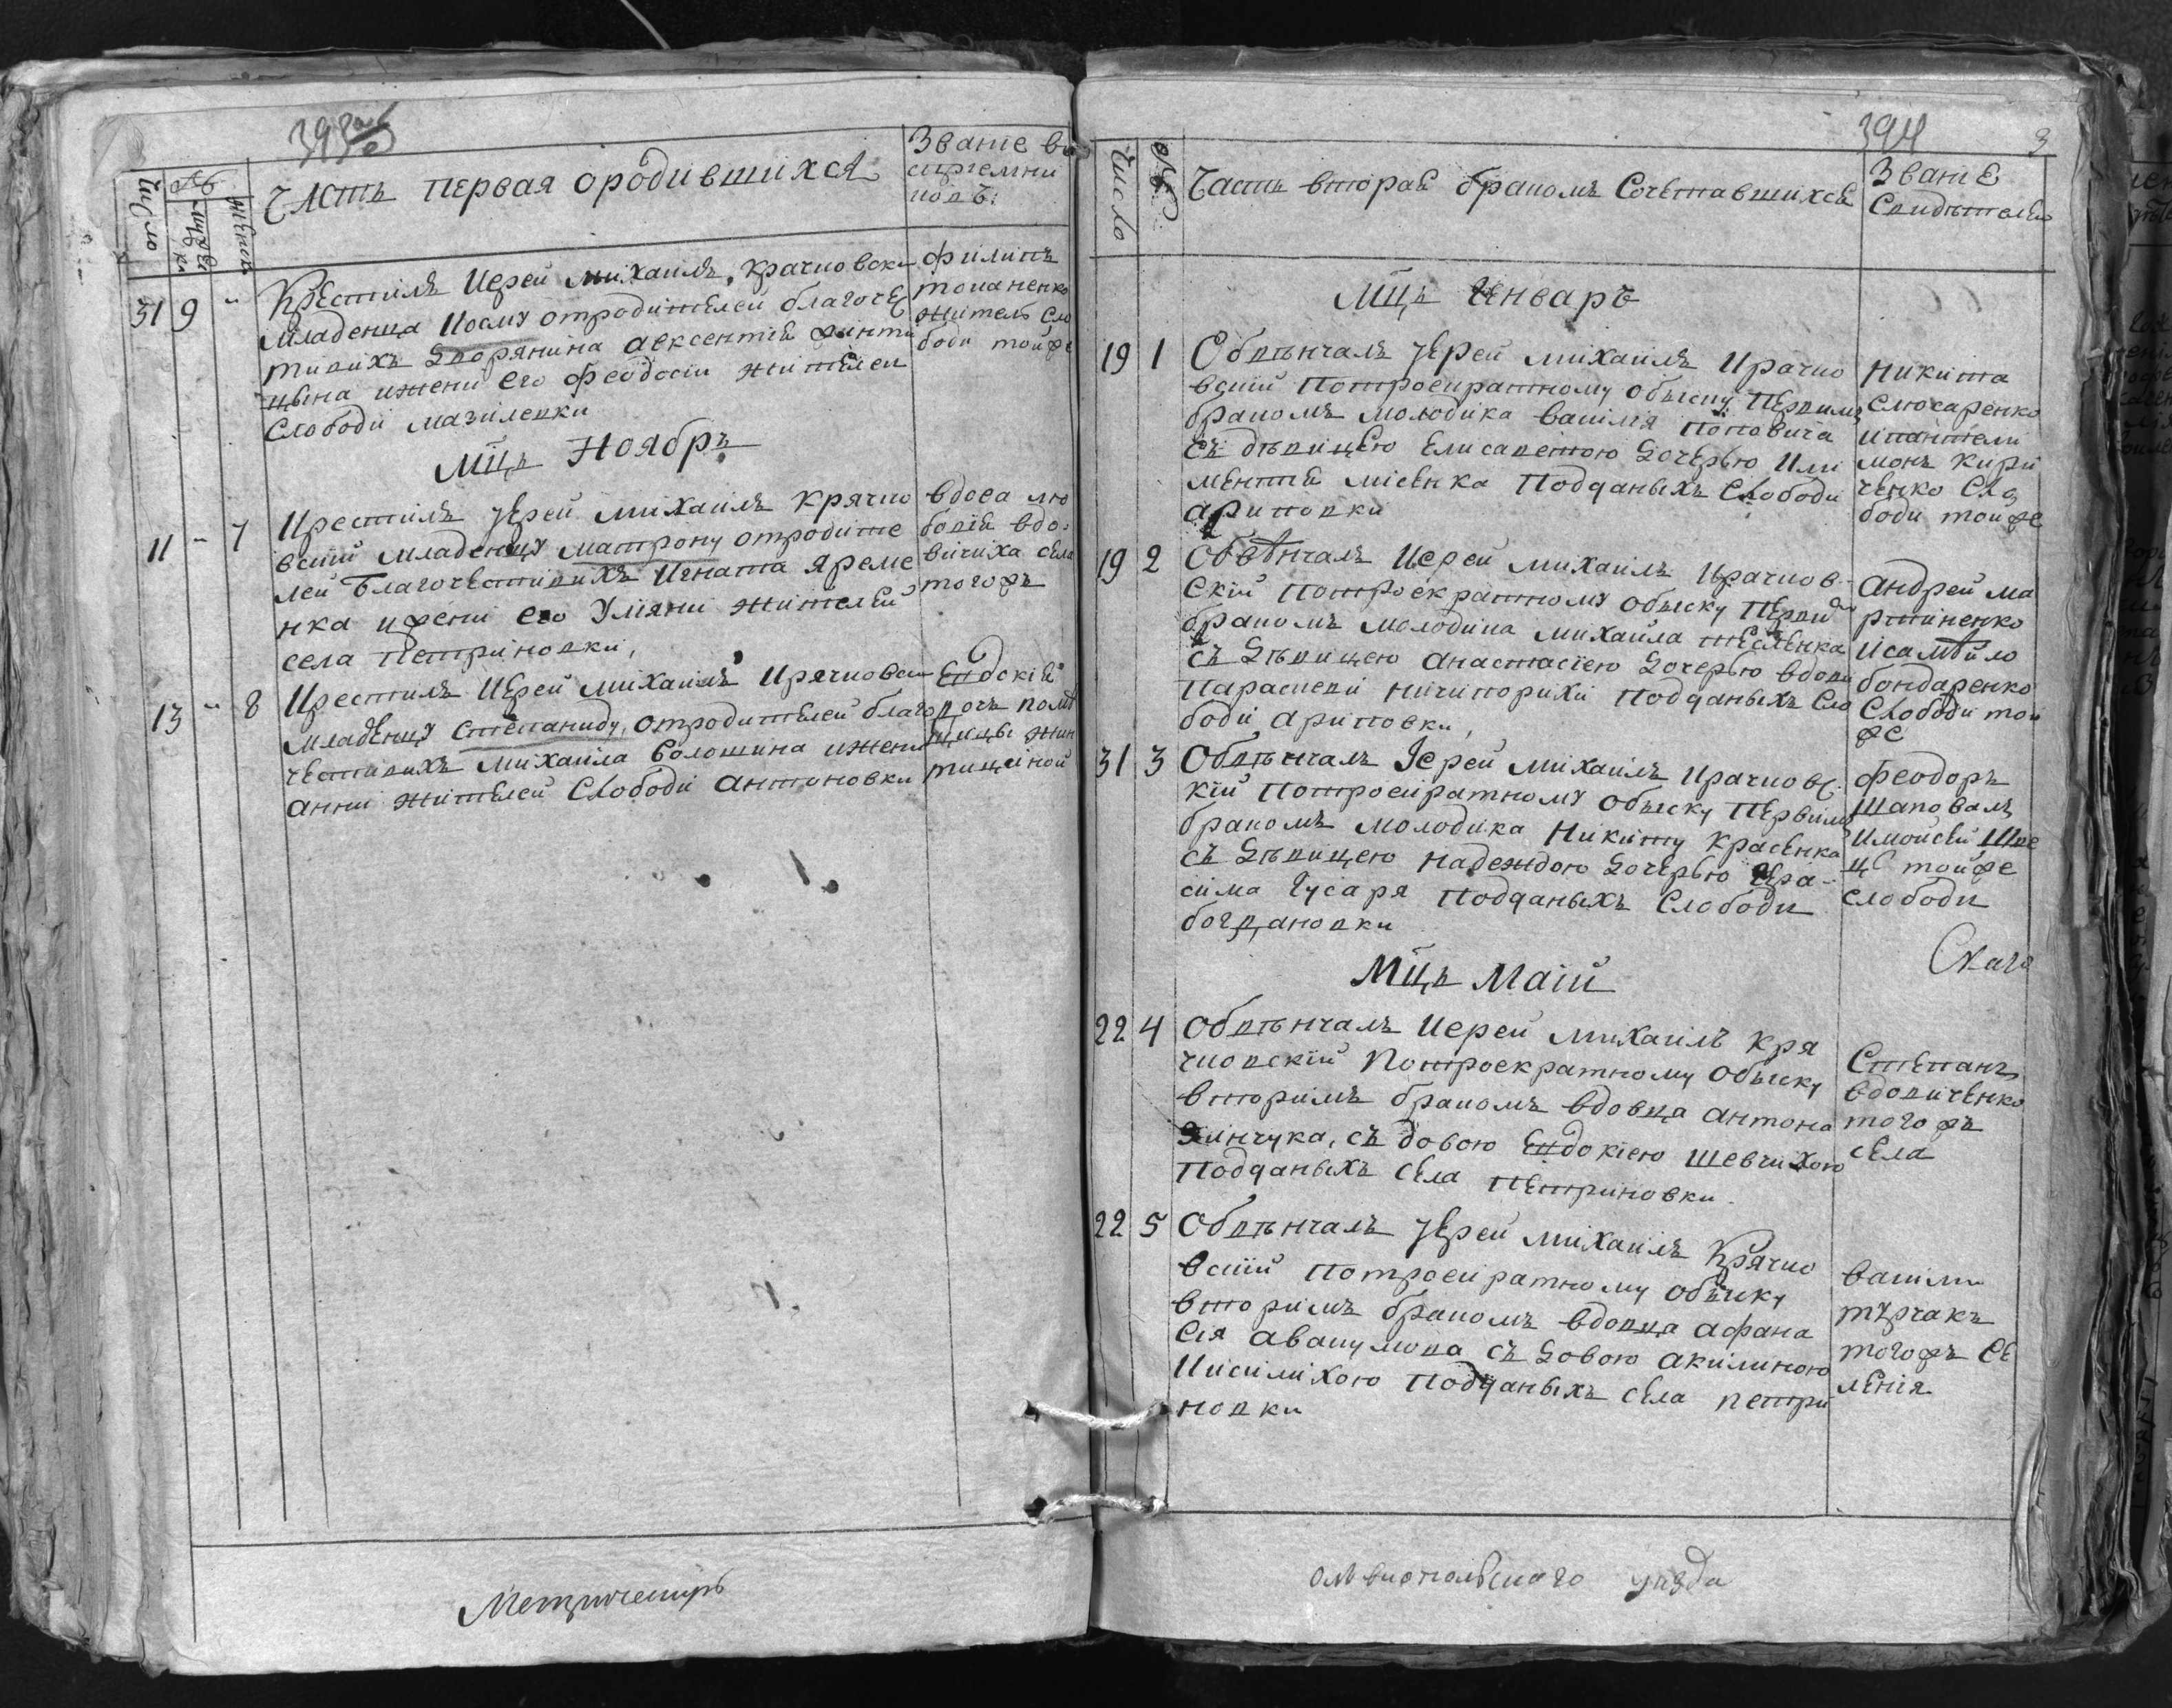 393 об
Число
№
мужеск
женск
Часть первая ородившихся
Звание во
сприемни
ковъ:
31 9 "
Крестилъ Иерей михаилъ крачковски
Младенца Косму отродителей благочес
тивихъ Дворянина авксентия
цына ижени его Феодосии жителей
Слободи мазилевки
филипъ
томаненко
житель сло
боди тойже
Мцъ Ноябръ
11 - 7
Крестилъ Іерей михаилъ крячко
вский младенцу матрону отродите
лей Благочестивихъ Игната яреме
нка ижени его Уляни жителей
села петриковки,
вдова лю
бовия вдо
вичиха села
тогожъ
13 " 8
Крестилъ Иерей михаилъ Крячковски
младенцу степаниду, отродителей благо
честивихъ михаила волошина ижени
анни жителей Слободи антоновки
Евдокия
дочь помѣ
щицы
Метрическиръ
394
3
Число
№
Часть вторая бракомъ Сочетавшихся
Звание
Свидѣтелей
Мцъ Генваръ
19 1
Обвѣнчалъ Іерей михаилъ Крачко
вский потроекратному обыску первимъ
бракомъ молодика василия поповича
съ дѣвицею Елисаветою Дочерью Кли
ментия лисенка подданыхъ Слободи
ариповки
Никита
слюсаренко
ипантели
монъ кири
ченко Сло
боди тойже
19 2
Обвѣнчалъ Иерей михаилъ крачков-
ский потроекратному обыску перви
бракомъ молодика михаила тесленка
съ Дѣвицею анастасиею Дочерью вдови
Параскеви ничипорихи подданыхъ Сло
боди ариповки,
андрей ма
ртиненко
исамойло
бондаренко
Слободи той
же
31 3
Обвѣнчалъ Іерей михаилъ Крачковс
кий потроекратному обыску Первимъ
бракомъ молодика Никиту красенка
съ Дѣвицею надеждою Дочерью Гера-
сима Гусаря подданыхъ Слободи
богдановки
феодоръ
шаповалъ
имойсей Шве
ц тойже
слободи
Мцъ Маій
22 4
Обвѣнчалъ Иерей михаилъ кря
чковский потроекратному обыску
вторимъ бракомъ вдовца антона
Зинчука, съ довою Евдокиею шевчихою
подданыхъ села петриковки.
Степанъ
вдовиченко
тогожъ
села
22 5
Обвѣнчалъ Іерей михаилъ Крячко
вский потроекратному обыску
вторимъ бракомъ вдовца афана
сія авакумова съ Довою акилиною
Кисилихою подданыхъ села петри
ковки
василий
турчакъ
тогожъ се
ления
ольвиопольскаго уѣзда